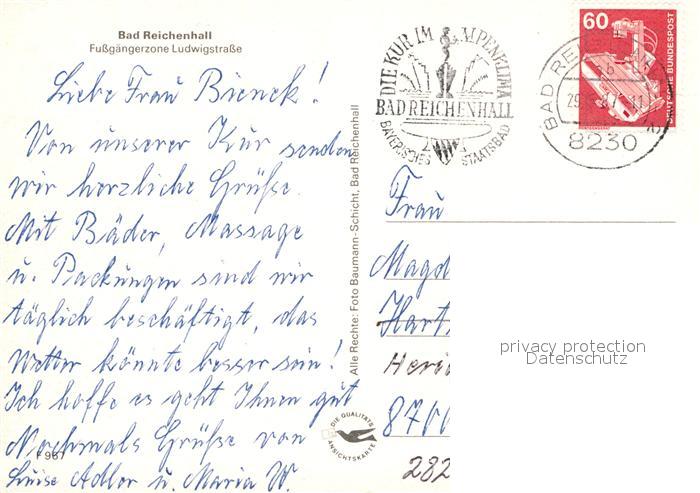 Bad Reichenhall
Fußgängerzone Ludwigstraße
Liebe Frau Bieneck!
Von unserer Kur senden
wir herzliche Grüße.
Mit Bäder, Massage
u. Packungen sind wir
täglich beschäftigt, das
Wetter könnte besser sein!
Ich hoffe es geht Ihnen gut
Nochmals Grüße von
Luise Adler u. Maria W.
F 967
Alle Rechte: Foto Baumann-Schicht, Bad Reichenhall
DIE QUALITÄTS
ANSICHTSKARTE
DIE KUR IM ALPENKLIMA
BAD REICHENHALL
BAYERISCHES STAATSBAD
60
DEUTSCHE BUNDESPOST
BAD REI
8230
Frau
Magd
Hart
8700
282
privacy protection
Datenschutz